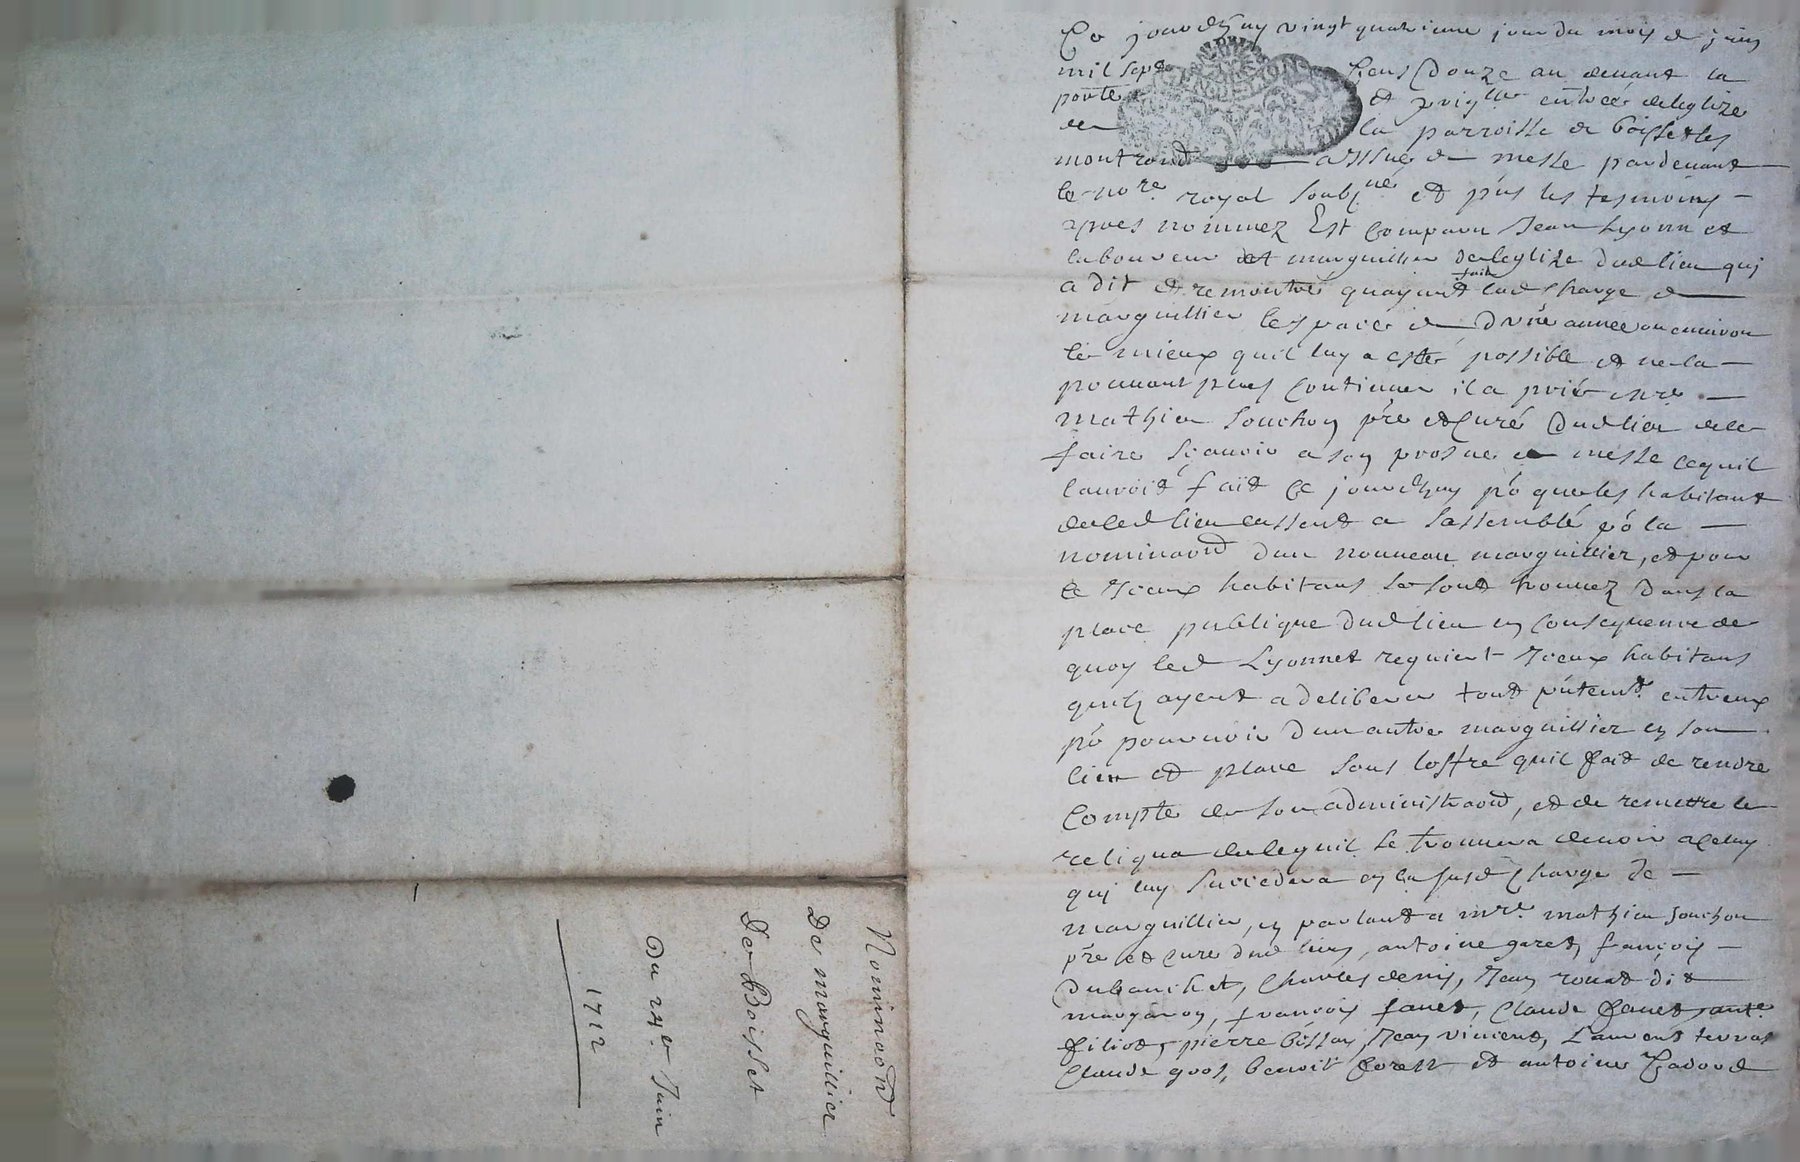 Ce jourdhuy vingt quatrieme jour du mois de juin
mil sept Cens Douze au devant la
porte et prin^lle entrée de leglize
de la parroisse de boisset les
montrond a lissue de messe pardevant
le no^re royal soub^né et p^ns les tesmoins
apres nommez Est Comparu Jean Lyonnet
laboureur et marguillier de leglize dud lieu qui
a dit et remontré quayant fait lad charge de
marguillier lespace de Dune année ou environ
le mieux quil luy a esté possible et ne la
pouvant plus Continuer il a prié m^re
mathieu Souchon p^re et Curé Dud lieu de le
faire sçavoir a son prosne de messe ce quil
auroit fait Ce jourdhuy po^r que les habitant
dud lieu eussent a sassemblé po^r la
nomina^on dun nouveau marguillier, et pour
ce Iceux habitans se sont trouvez Dans la
place publique dud lieu en Consequence de
quoy led Lyonnet requiert Iceux habitans
quilz ayent a deliberer tout p^ntem^t entreux
po^r pourvoir Dun autre marguillier en son
lieu et place sous loffre quil fait de rendre
Compte de son administra^on, et de remettre le
reliqua de ce quil se trouvera devoir a Celuy
qui luy succedera en la susd Charge De
marguillier, en parlant a m^re mathieu souchon
p^re et Curé dud lieu, antoine garet, françois
Dubanchet, Charles denis, Jean rouat dit
margaron, françois favet, Claude favet, ant^e
filiot, pierre bissay, Jean vinient, Laurens terras
Claude gros, benoit forest et antoine
Nomina^on
De marguillier
De Boisset
Du 24^e Juin
1712